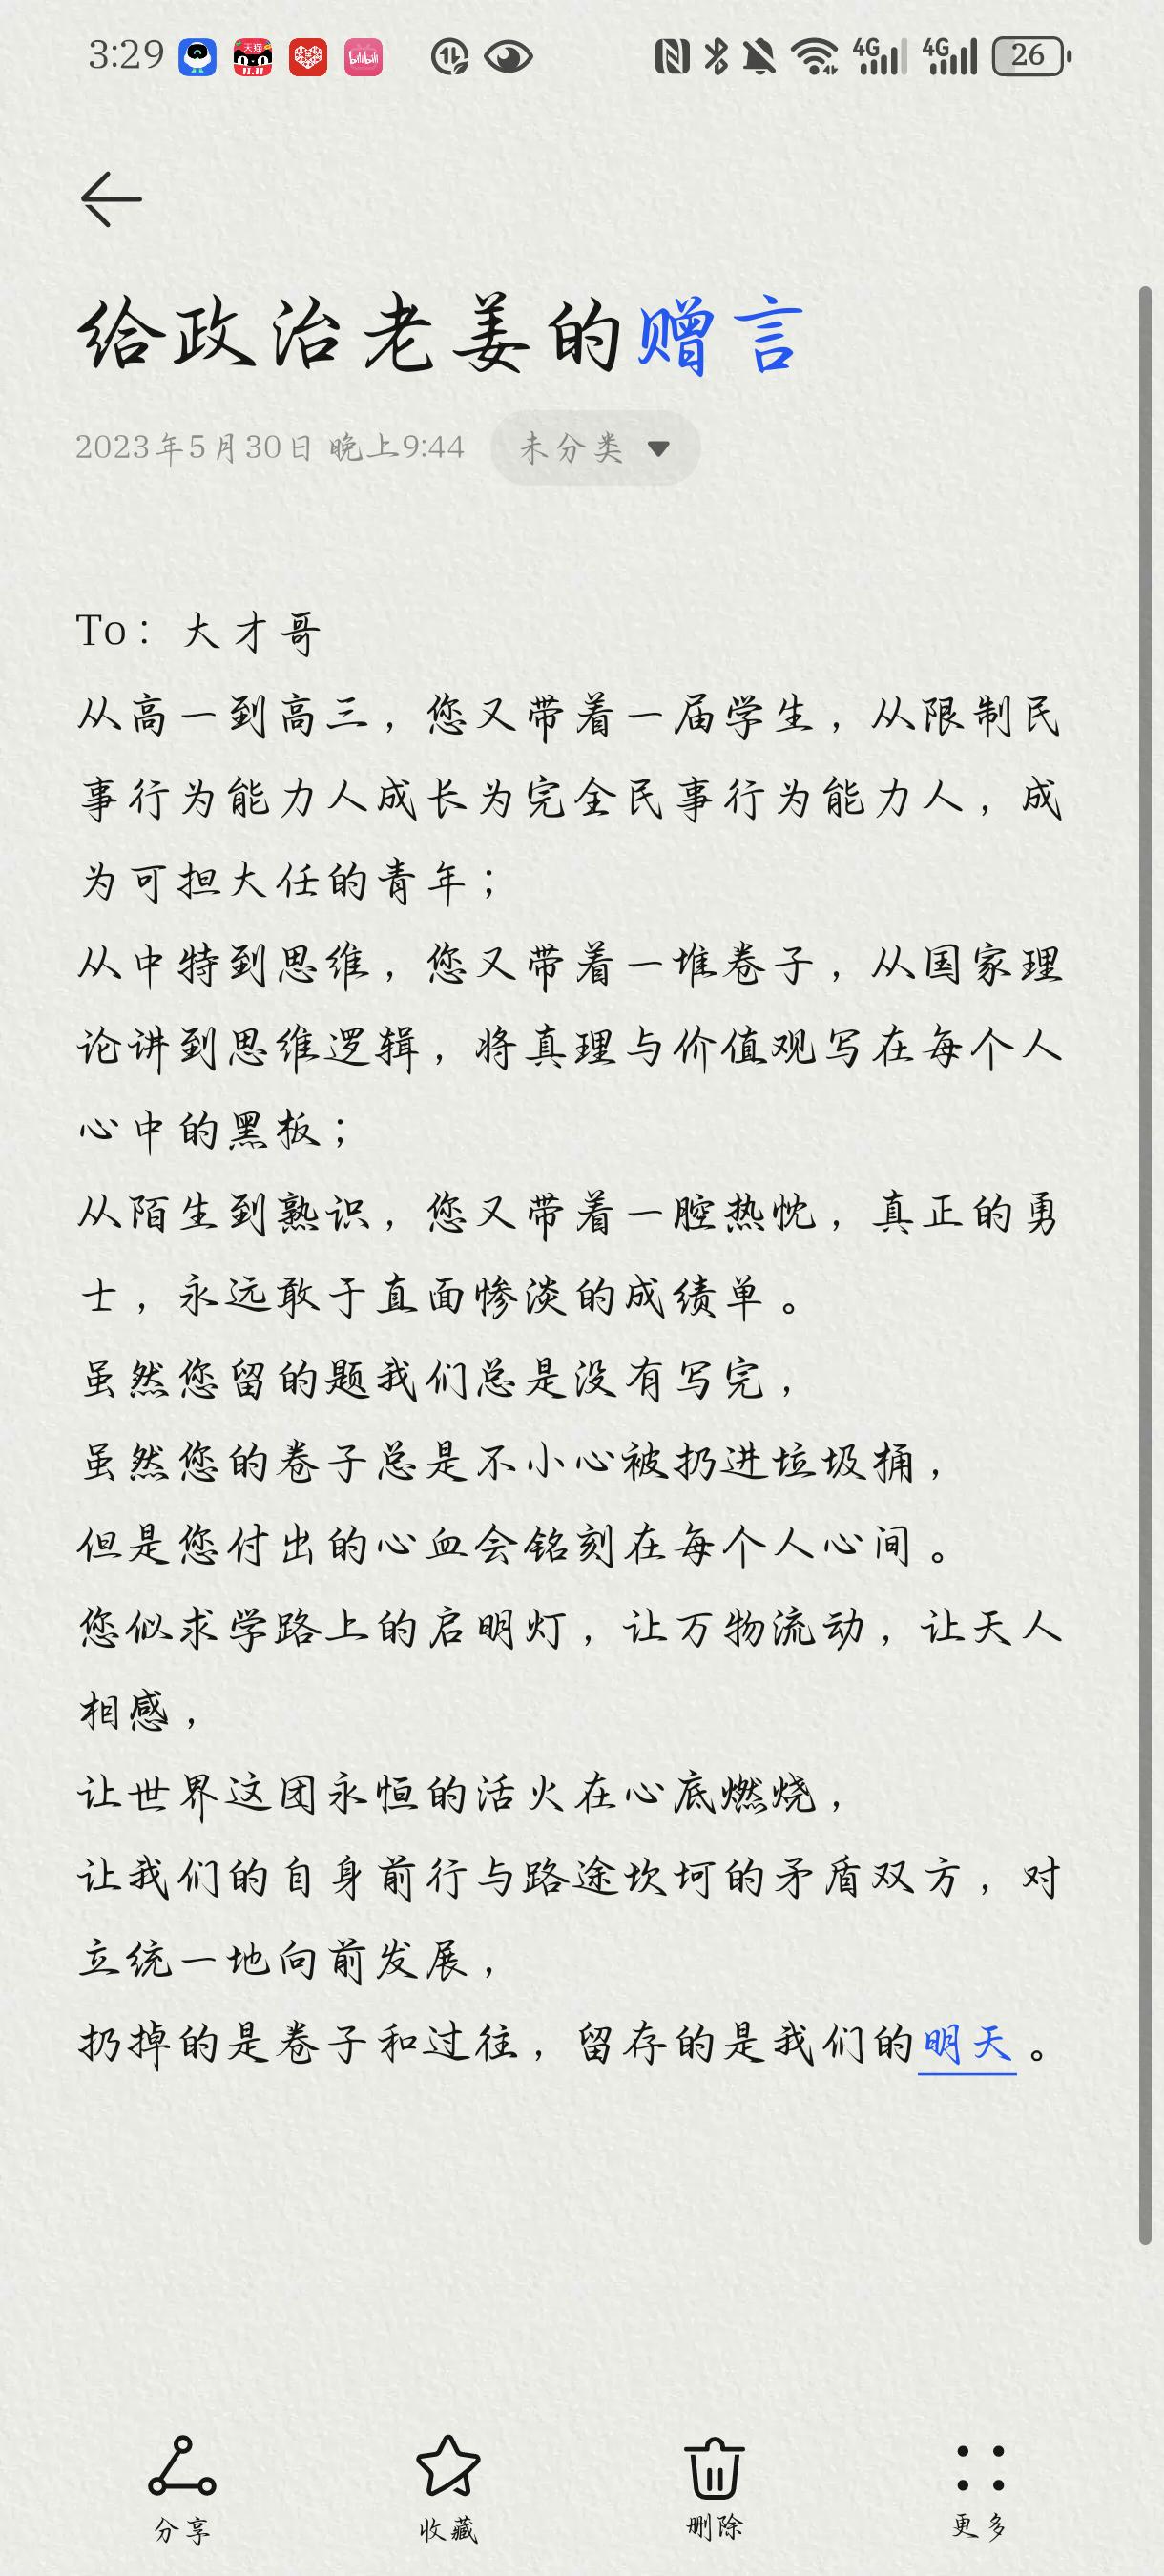 3:29
天猫
11.11
bilibili
4G
4G
26
给政治老姜的赠言
2023年5月30日 晚上9:44
未分类
To：大才哥
从高一到高三，您又带着一届学生，从限制民
事行为能力人成长为完全民事行为能力人，成
为可担大任的青年；
从中特到思维，您又带着一堆卷子，从国家理
论讲到思维逻辑，将真理与价值观写在每个人
心中的黑板；
从陌生到熟识，您又带着一腔热忱，真正的勇
士，永远敢于直面惨淡的成绩单。
虽然您留的题我们总是没有写完，
虽然您的卷子总是不小心被扔进垃圾桶，
但是您付出的心血会铭刻在每个人心间。
您似求学路上的启明灯，让万物流动，让天人
相感，
让世界这团永恒的活火在心底燃烧，
让我们的自身前行与路途坎坷的矛盾双方，对
立统一地向前发展，
扔掉的是卷子和过往，留存的是我们的明天。
分享
收藏
删除
更多